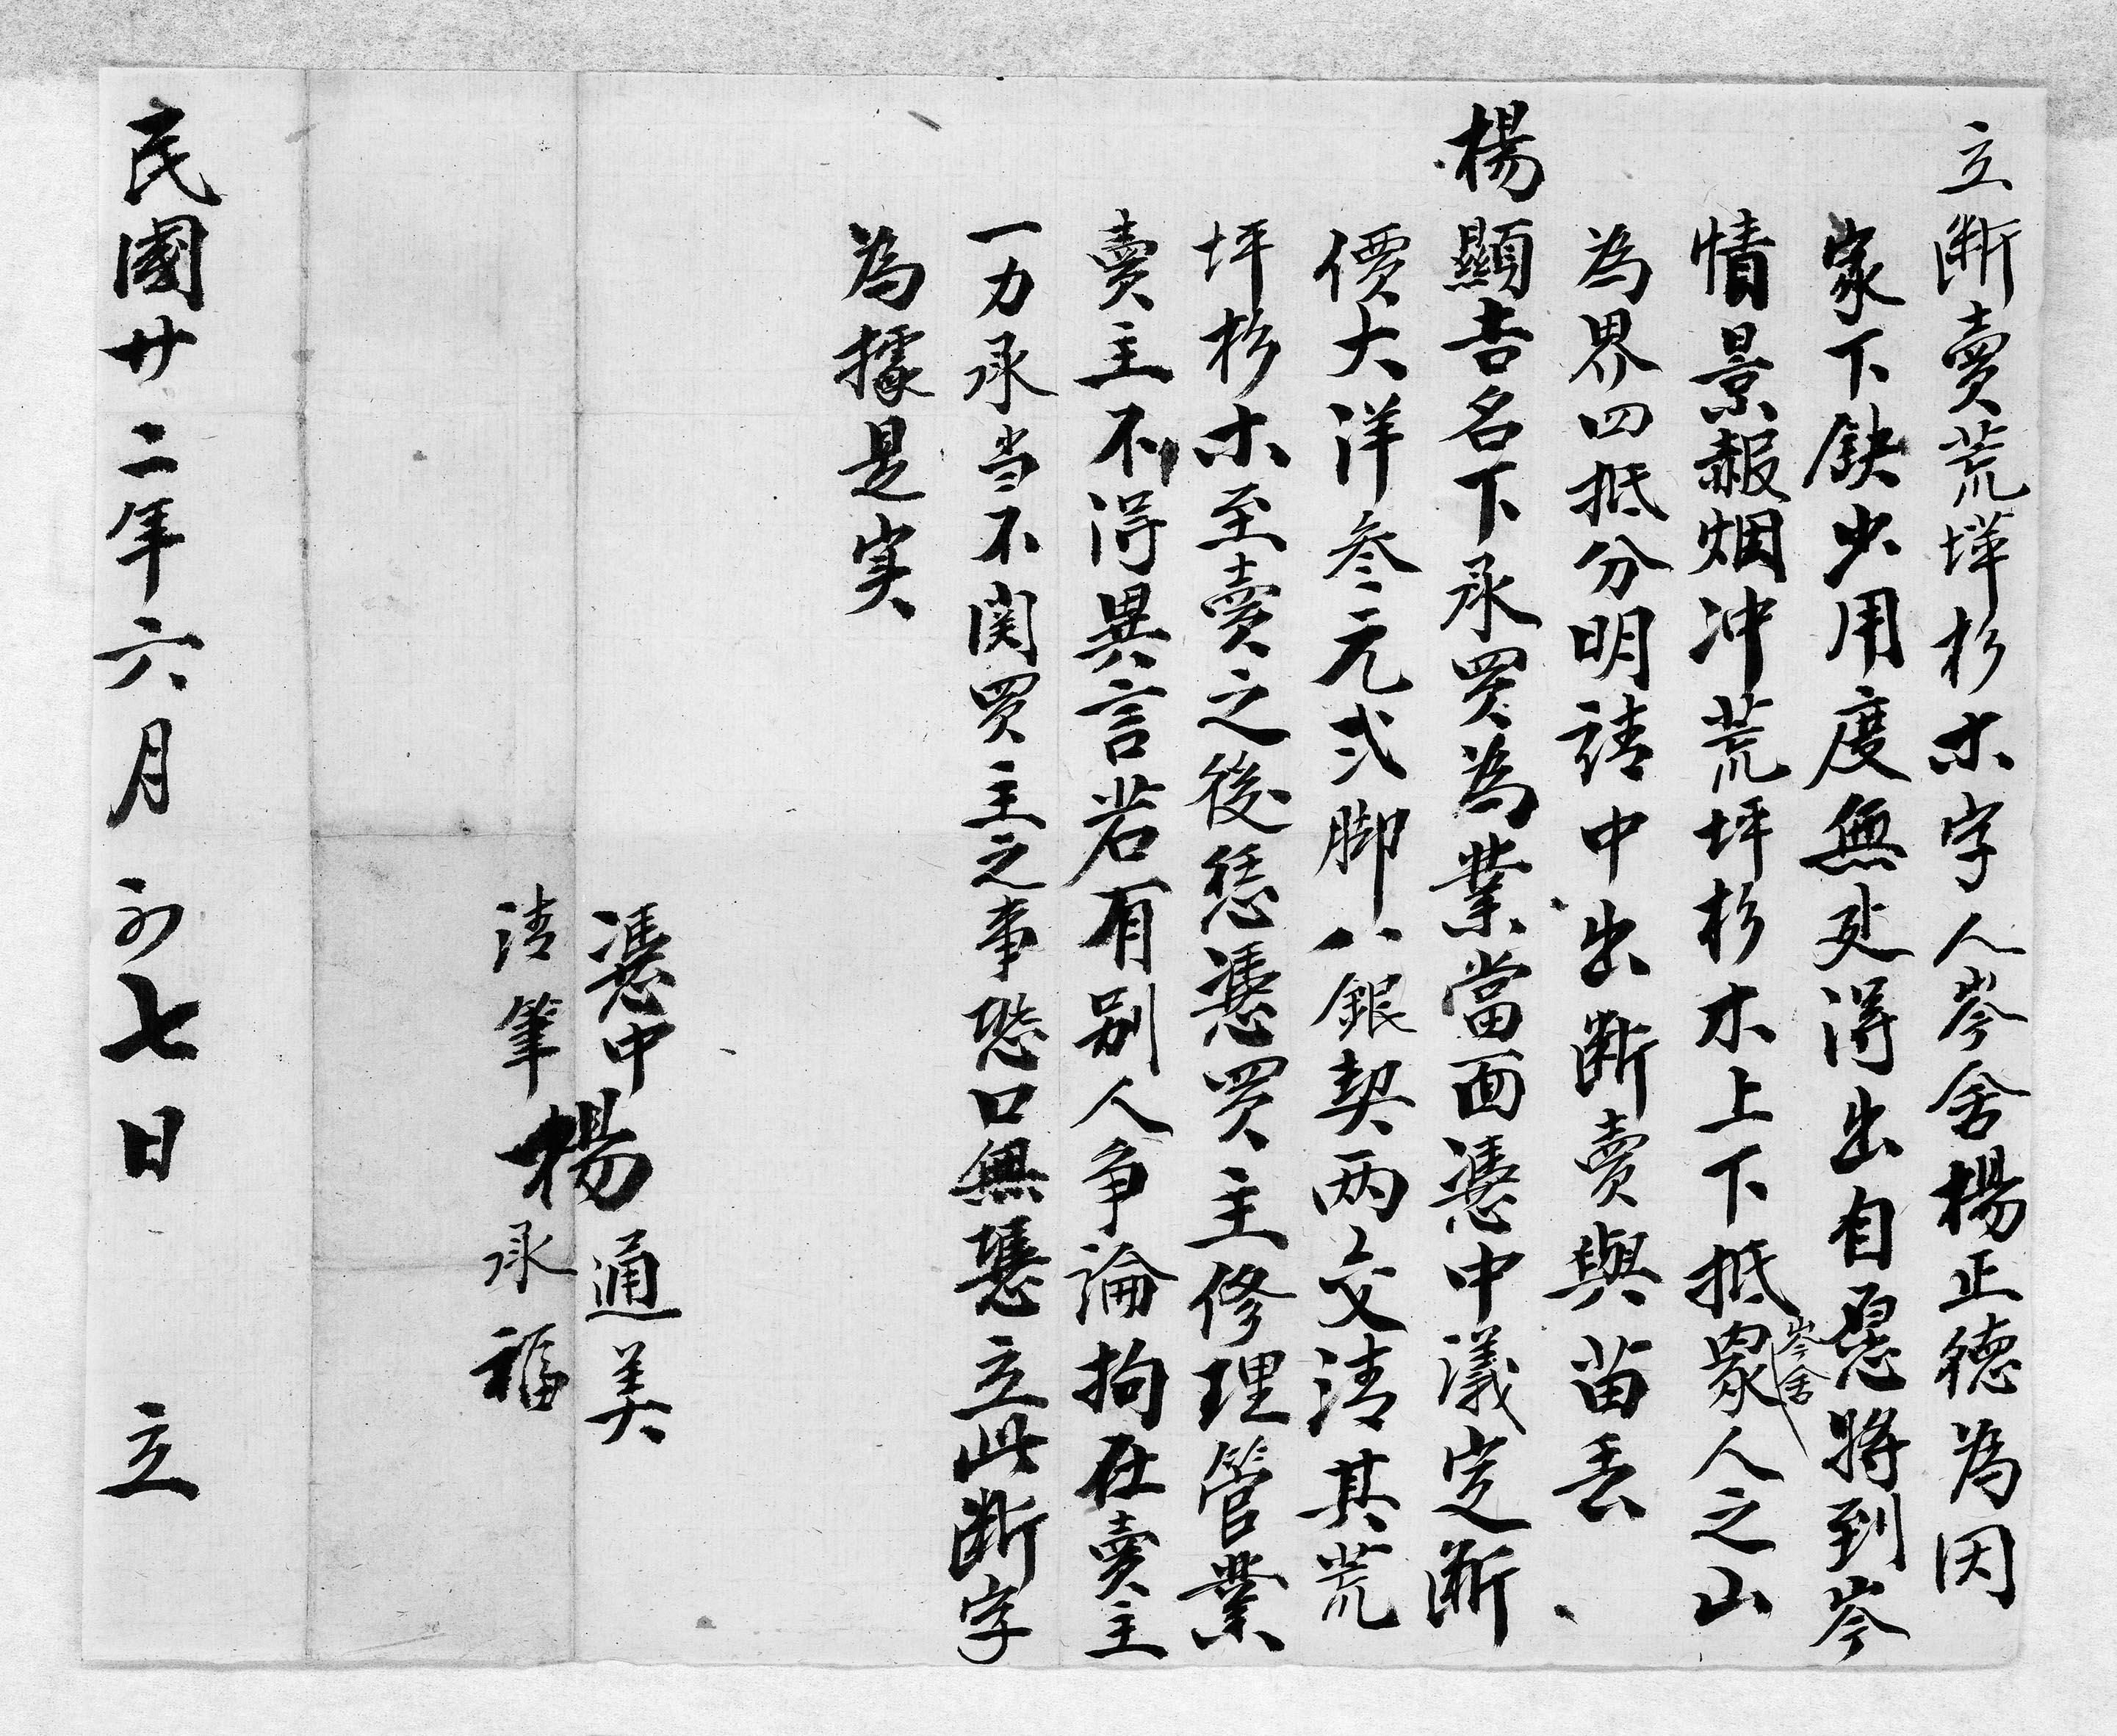 立断賣荒坪杉木字人岑舍楊正德為因
家下缺少用度無处得出自愿將到岑
情景赧烟冲荒坪杉木上下抵岑舍衆人之山
為界四抵分明請中出断賣與苗丢
楊顯吉名下承買為業當面憑中議定断
價大洋叁元弍脚八銀契两交清其荒
坪杉木至賣之後恁憑買主修理管業
賣主不得異言若有别人争論拘在賣主
一力承当不関買主之事恐口無憑立此断字
為據是実
憑中楊通美
請筆楊承福
民國廿二年六月初七日立